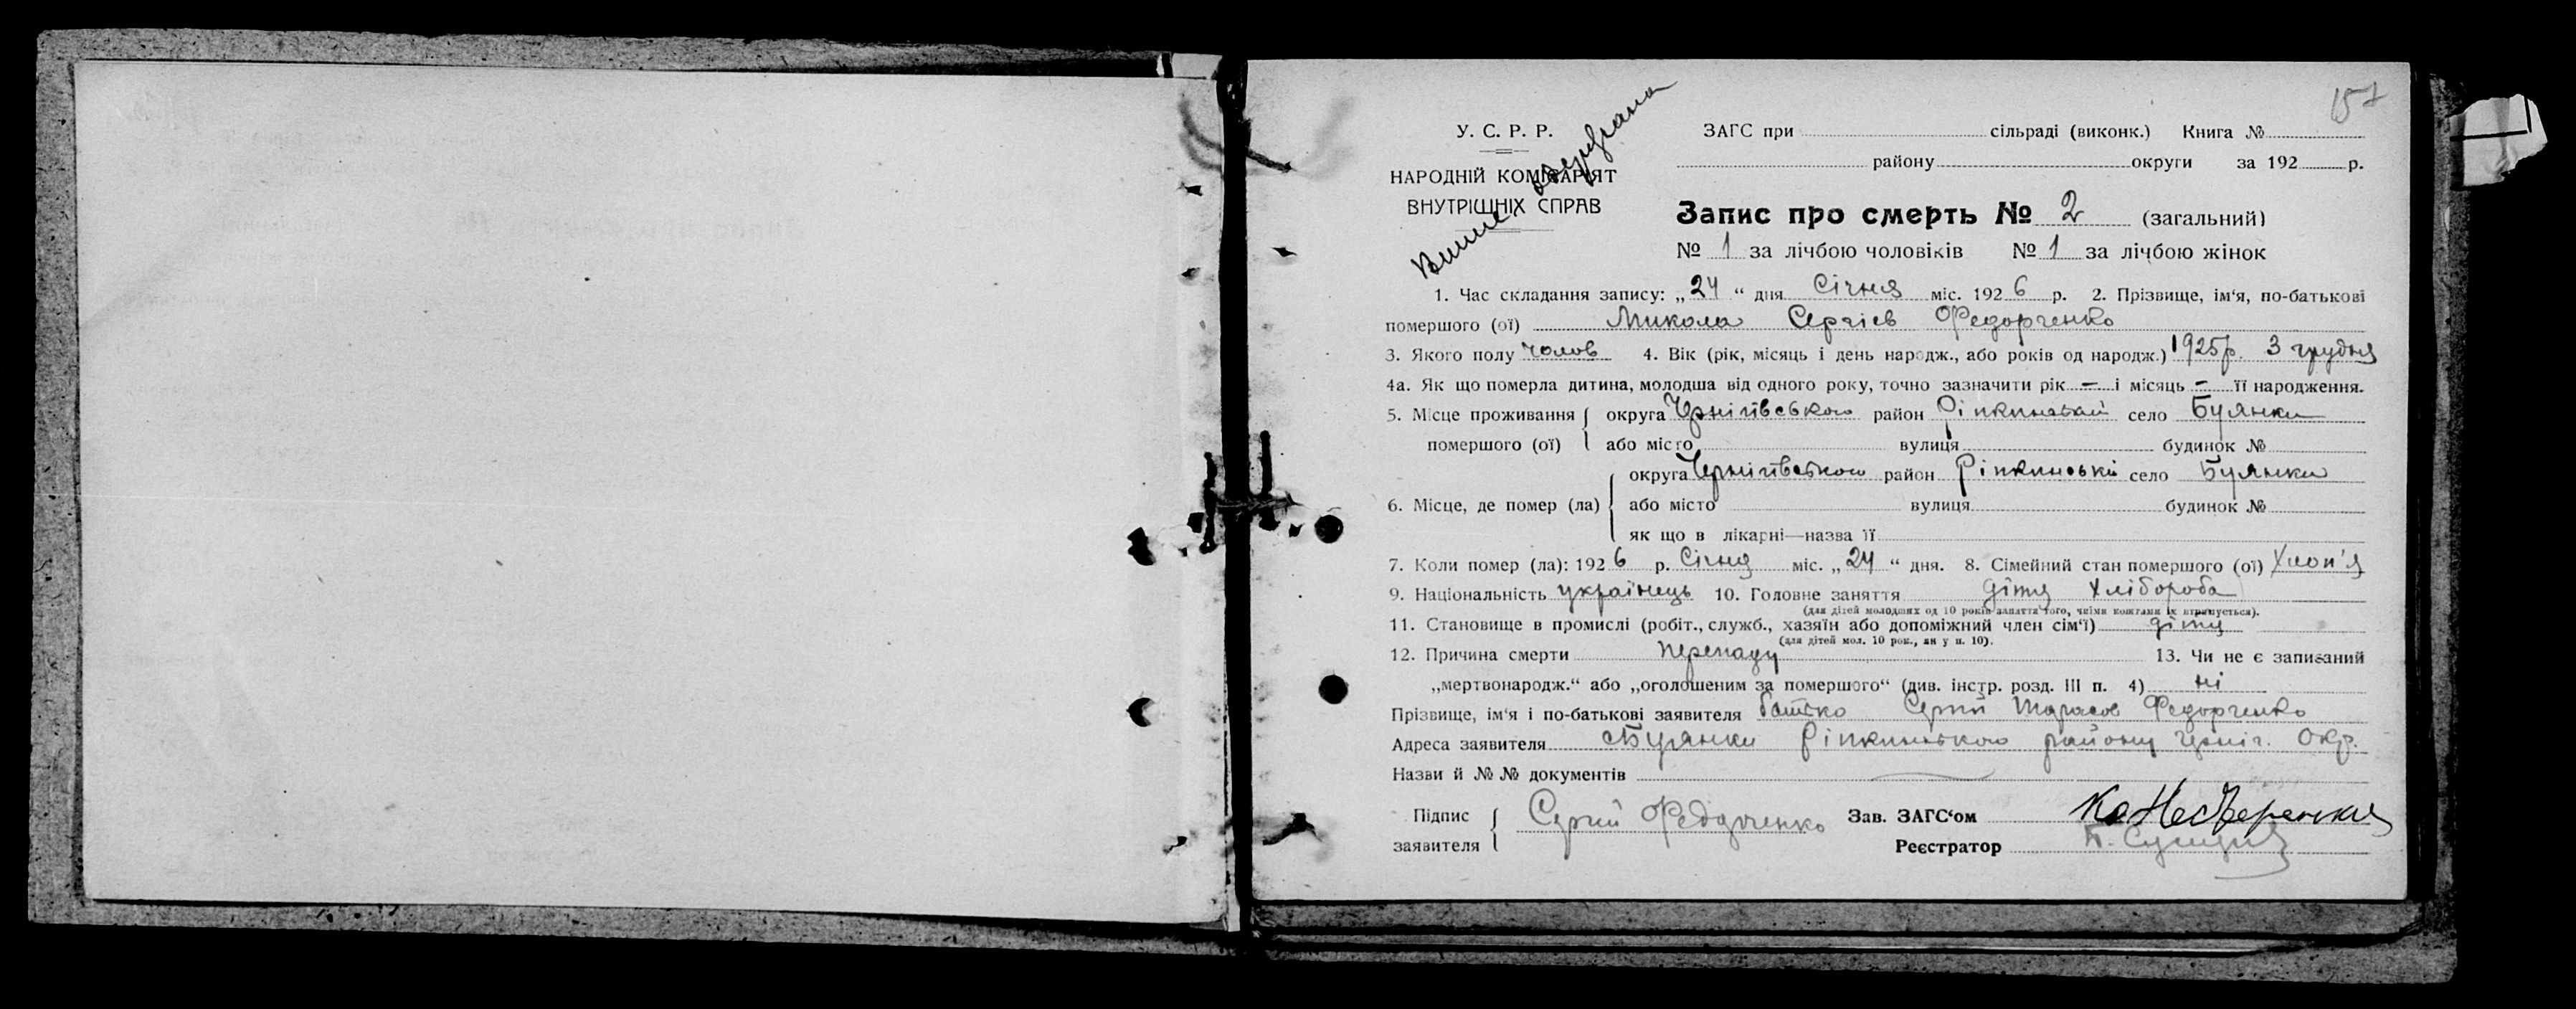 157
У. С. Р. Р.
НАРОДНІЙ КОМІСАРІЯТ
ВНУТРІШНІХ СПРАВ
ЗАГС при сільраді (виконк.) Книга №
району округи за 192 р.
Запис про смерть № 2 (загальний)
№ 1 за лічбою чоловіків № 1 за лічбою жінок
1. Час складання запису: „24“ дня Січня міс. 1926 р. 2. Прізвище, ім‘я, по-батькові
помершого (ої) Микола Сергієв Федорченко
3. Якого полу чолов 4. Вік (рік, місяць і день народж., або років од народж.) 1925р. 3 грудня
4а. Як що померла дитина, молодша від одного року, точно зазначити рік — і місяць — її народження.
5. Місце проживання округа Чернігівського район Ріпкинський село Буянки
помершого (ої) або місто вулиця будинок №
округа Чернігівського район Ріпкинські село Буянки
6. Місце, де помер (ла) або місто вулиця будинок №
як що в лікарні—назва її
7. Коли помер (ла): 1926 р. Січня міс. „24“ дня. 8. Сімейний стан помершого (ої) Хлоп'я
9. Національність українець 10. Головне заняття дітя Хлібороба
(для дітей молодших од 10 років заняття того, чиїми коштами їх втримується).
11. Становище в промислі (робіт., служб., хазяїн або допоміжний член сім‘ї) дітя
(для дітей мол. 10 рок., як у п. 10).
12. Причина смерти 13. Чи не є записаний
„мертвонародж.“ або „оголошеним за помершого“ (див. інстр. розд. III п. 4) ні
Прізвище, ім‘я і по-батькові заявителя батько Сергій Тарасов Федорченко
Адреса заявителя с Буянки Ріпкинського району Черніг. Окр.
Назви й №№ документів
Підпис заявителя Сергій Федорченко Зав. ЗАГС‘ом
Реєстратор